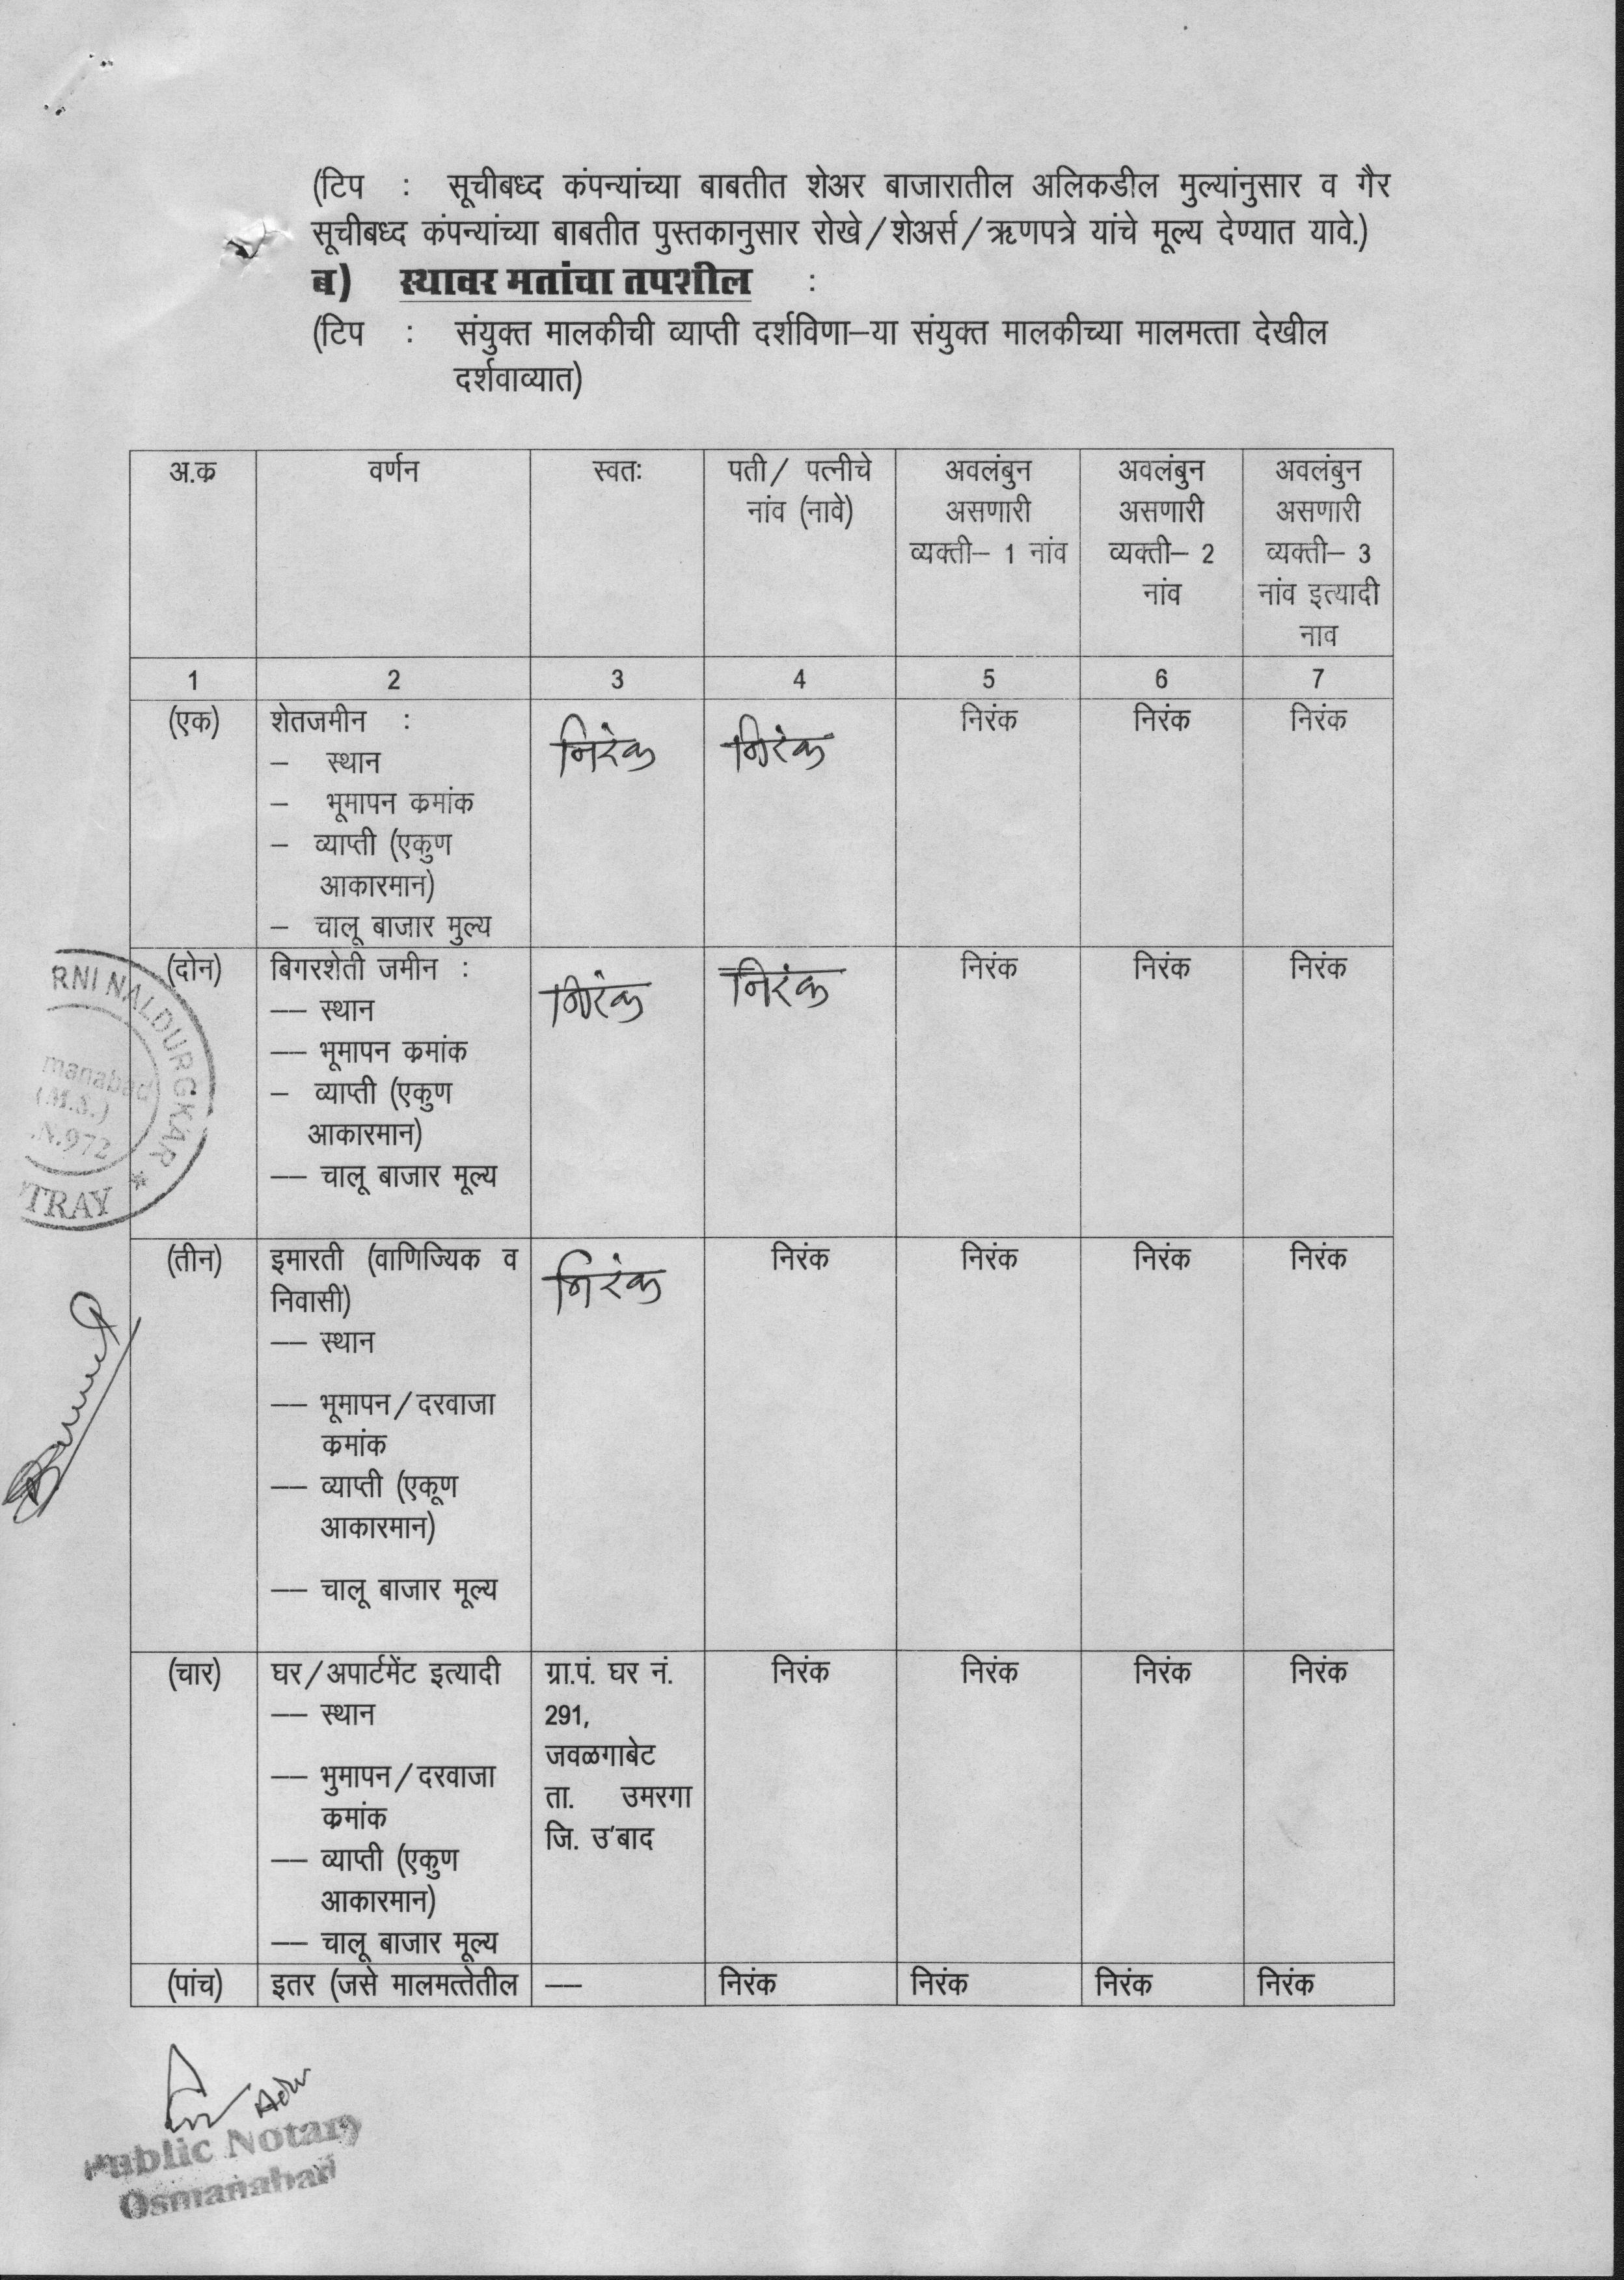 (टिप : सूचीबध्द कंपन्यांच्या बाबतीत शेअर बाजारातील अलिकडील मुल्यांनुसार व गैर
सूचीबध्द कंपन्यांच्या बाबतीत पुस्तकानुसार रोखे/शेअर्स/ऋणपत्रे यांचे मूल्य देण्यात यावे.)
ब) स्थावर मतांचा तपशील :
(टिप : संयुक्त मालकीची व्याप्ती दर्शविणा–या संयुक्त मालकीच्या मालमत्ता देखील
दर्शवाव्यात)
अ.क्र वर्णन स्वतः पती/ पत्नीचे अवलंबुन अवलंबुन अवलंबुन
नांव (नावे) असणारी असणारी असणारी
व्यक्ती– 1 नांव व्यक्ती– 2 व्यक्ती– 3
नांव नांव इत्यादी
नाव
1 2 3 4 5 6 7
(एक) शेतजमीन : निरंक निरंक निरंक निरंक निरंक
– स्थान
– भूमापन क्रमांक
– व्याप्ती (एकुण
आकारमान)
– चालू बाजार मुल्य
(दोन) बिगरशेती जमीन : निरंक निरंक निरंक निरंक निरंक
–– स्थान
–– भूमापन क्रमांक
– व्याप्ती (एकुण
आकारमान)
–– चालू बाजार मूल्य
(तीन) इमारती (वाणिज्यिक व निरंक निरंक निरंक निरंक निरंक
निवासी)
–– स्थान
–– भूमापन/दरवाजा
क्रमांक
–– व्याप्ती (एकूण
आकारमान)
–– चालू बाजार मूल्य
(चार) घर/अपार्टमेंट इत्यादी ग्रा.पं. घर नं. निरंक निरंक निरंक निरंक
–– स्थान 291,
जवळगाबेट
–– भुमापन/दरवाजा ता. उमरगा
क्रमांक जि. उ'बाद
–– व्याप्ती (एकुण
आकारमान)
–– चालू बाजार मूल्य
(पांच) इतर (जसे मालमत्तेतील –– निरंक निरंक निरंक निरंक
RNI NALDURGKAR
manabad
(M.S.)
.N.972
TRAY *
Public Notary
Osmanabad